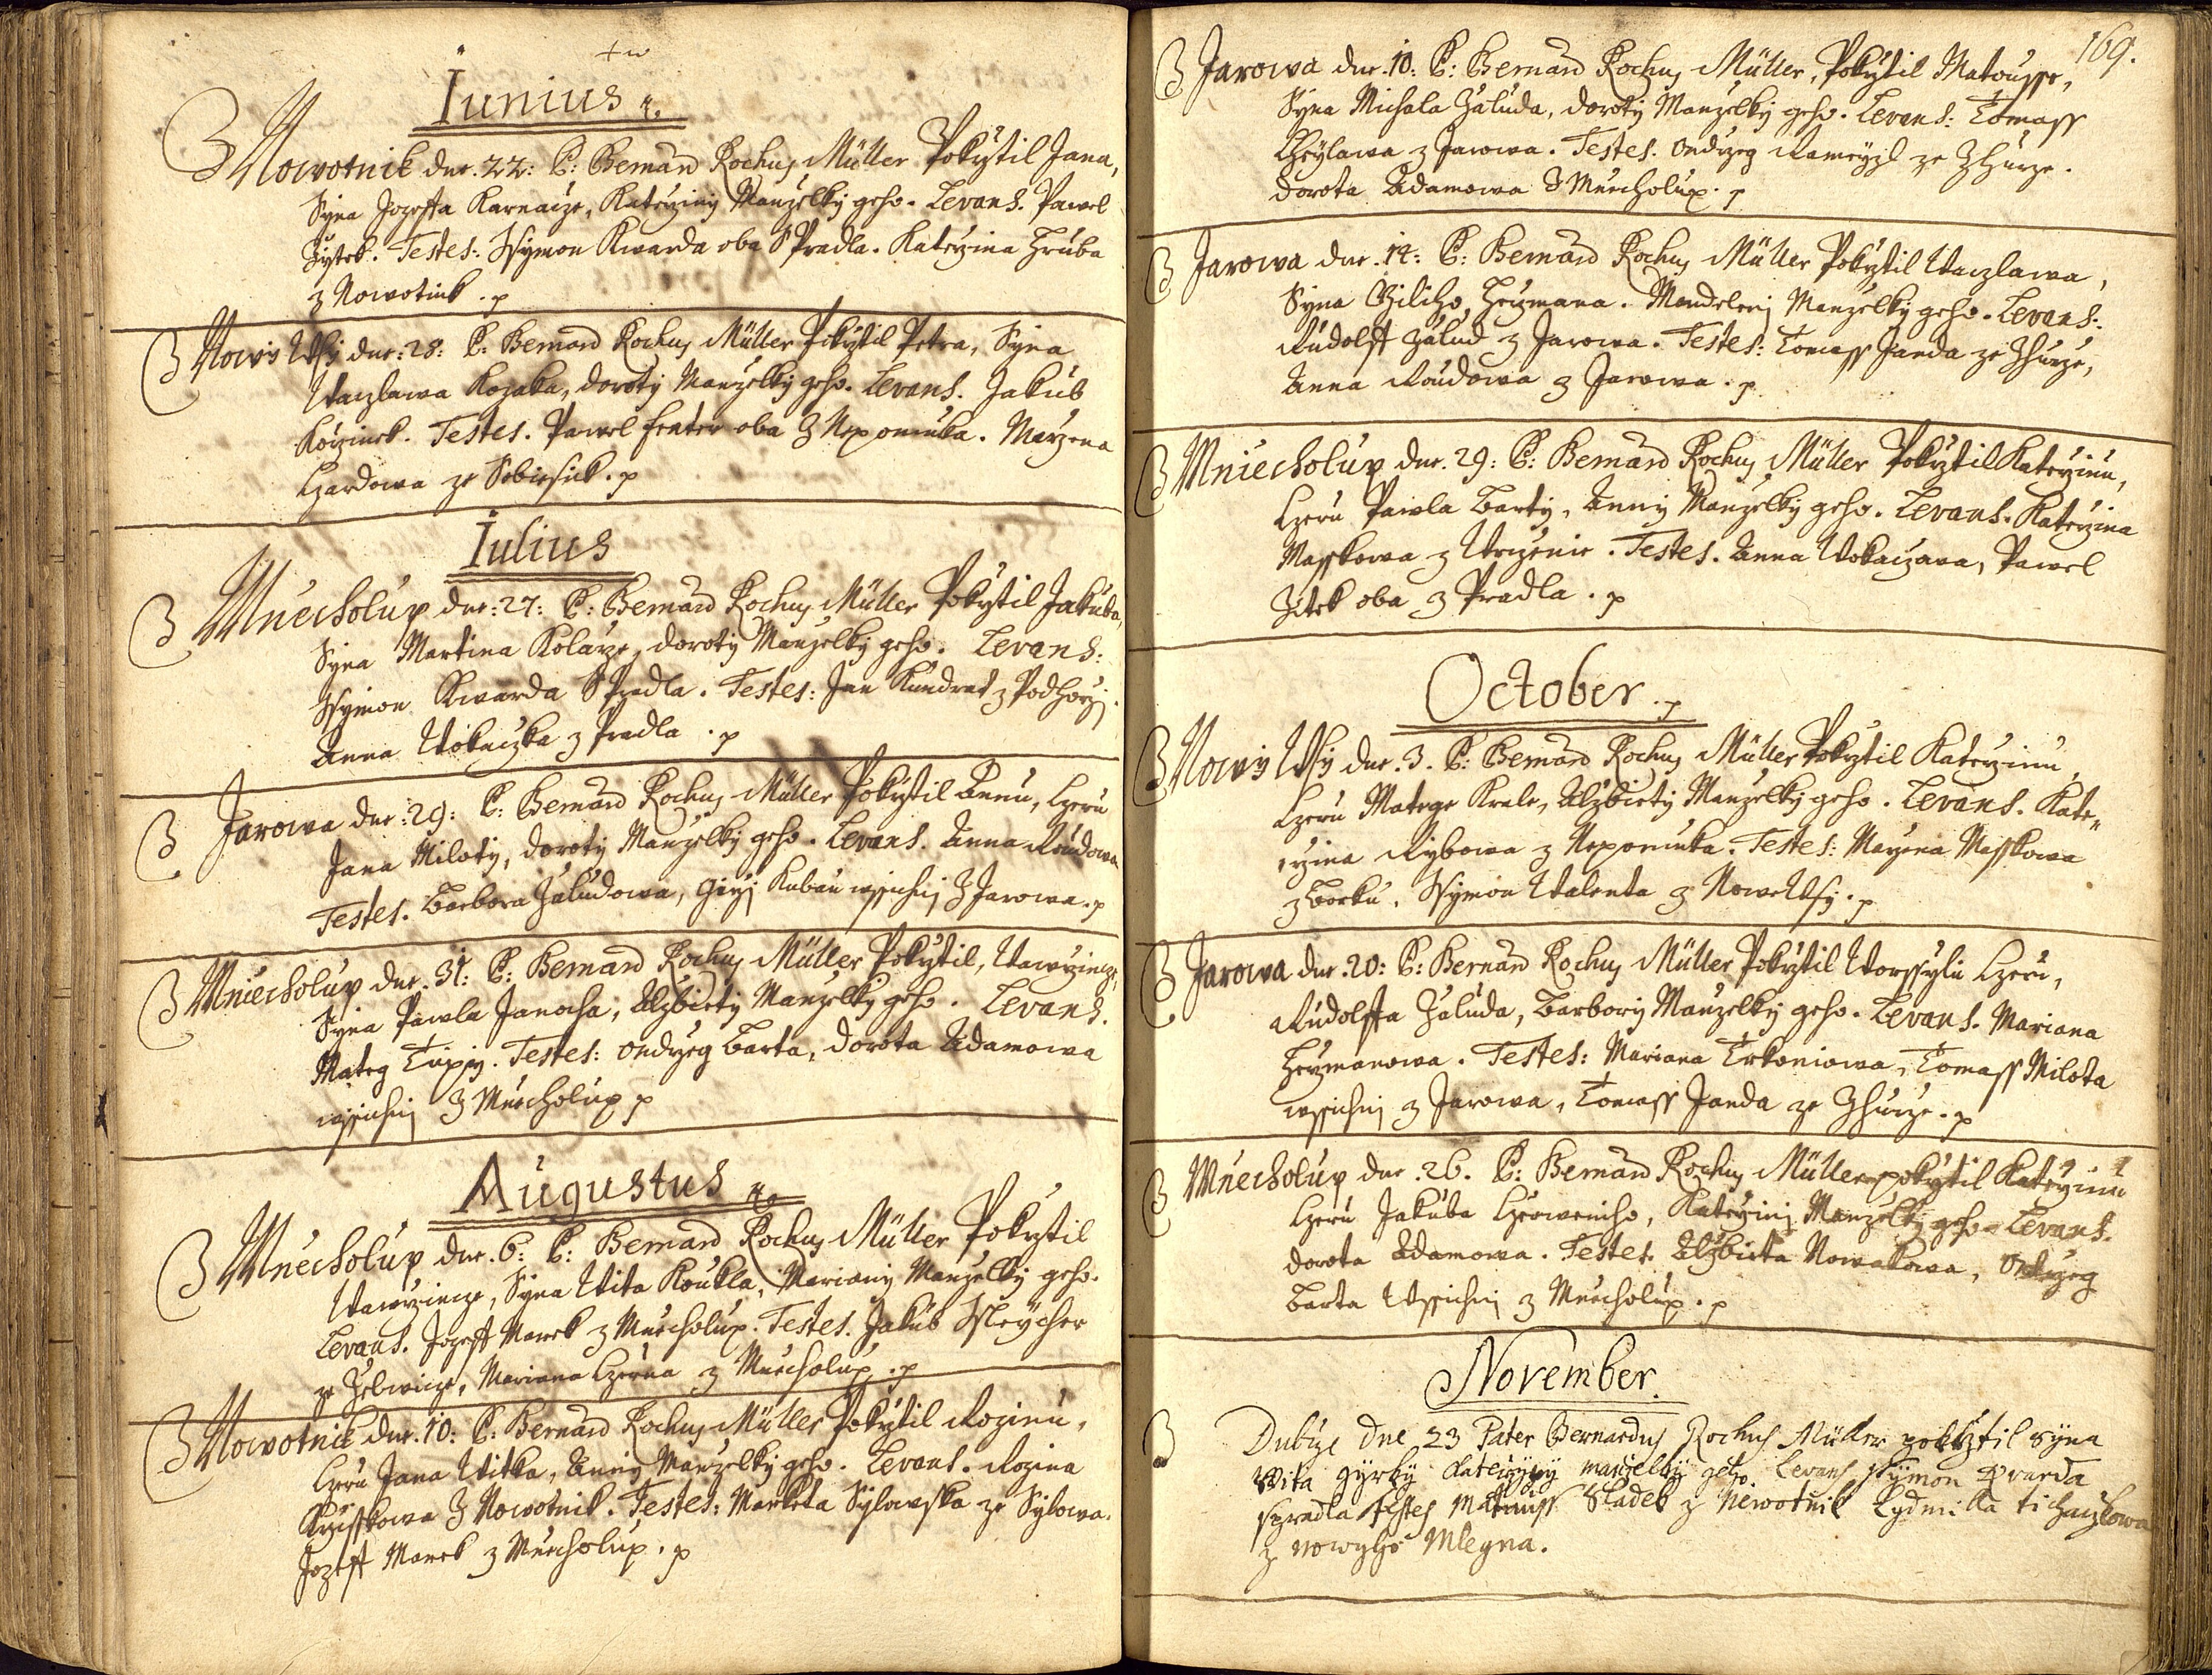 Iunius
Z Nowotnik dne. 22: P: Bernard Rochus Müller Pokrztil Jana,
Syna Jozeffa Karnaize, Katerziny Manzelky geho. Levans. Pawel
Žytek. Testes: Ssymon Kwarda oba S Pradla. Katerzina Hruba
z Nowotnik. p
Z Nowy Wsy dne: 28: P: Bernard Rochus Müller Pokrztil Petra, Syna
Waczlawa Kozaka, doroty Manzelky geho. Levans. Jakub
Korzinek. Testes. Pawel frater oba Z Nepomuka. Marzena
Czardowa ze Sobiesuk. p
Iulius
Z Mniecholup dne: 27: P: Bernard Rochus Müller Pokrztil Jakuba,
Syna Martina Kolarze, doroty Manzelky geho. Levans:
Ssymon Kwarda S Pradla. Testes: Jan Kundrat z Podhorzj.
Anna Wokaczka z Pradla. p
Z Jarowa dne: 29: P: Bernard Rochus Müller Pokrztil Annu, Czeru
Jana Miloty, doroty Manzelky geho. Levans. Anna Raudowa
Testes. Barbora Zaludowa, Girzj Kuban wssichnj Z Jarowa. p
Z Mniecholup dne. 31: P: Bernard Rochus Müller Pokrztil, Wawrzincze,
Syna Pawla Janocha, Alzbiety Manzelky geho. Levans.
Mateg Tupy. Testes: Ondrzeg Barta, dorota Adamowa
wssichnj Z Mniecholup p
Augustus
Z Mniecholup dne. 6: P: Bernard Rochus Müller Pokrztil
Wawrzincze, Syna Wita Koukla, Mariany Manzelky geho.
Levans. Jozeff Marek z Mniecholup. Testes. Jakub Ssleycher
ze Zelwicze, Mariana Czerna z Mniecholup. p
Z Nowotnik dne. 10: P: Bernard Rochus Müller Pokrztil Rozinu,
Czeru Jana Witka, Anny Manzelky geho. Levans. Rozina
Krzisskowa Z Nowotnik. Testes: Marketa Sylowska ze Sylowa.
Jozeff Marek z Mniecholup. p
169.
Z Jarowa dne. 10: P: Bernard Rochus Müller, Pokrztil Matousse,
Syna Michala Zaluda, doroty Manzelky geho. Levans: Tomass
Chylawa z Jarowa. Testes. Ondrzeg Rameyzl ze Zhurze.
dorota Adamowa Z Mniecholup. p
Z Jarowa dne. 14: P: Bernard Rochus Müller Pokrztil Waczlawa,
Syna Gilicho Herzmana. Mandeleny Manzelky geho. Levans:
Rudolff Zalud z Jarowa. Testes: Tomass Janda ze Zhurze,
Anna Raudowa z Jarowa. p
Z Mniecholup dne. 29: P: Bernard Rochus Müller Pokrztil Katerzinu,
Czeru Pawla Barty, Anny Manzelky geho. Levans. Katerzina
Masskowa z Wrczenie. Testes. Anna Wokaczowa, Pawel
Zitek oba z Pradla. p
October
Z Nowy Wsy dne. 3. P: Bernard Rochus Müller Pokrztil Katerzinu,
Czeru Matege Krale, Alzbiety Manzelky geho. Levans. Kate-
rzina Rybowa z Nepomuka. Testes: Marzena Masskowa
z Borku. Ssymon Walenta z Nowe Wsy. p
Z Jarowa dne. 20: P: Bernard Rochus Müller Pokrztil Worssylu Czeru,
Rudolffa Zaluda, Barbory Manzelky geho. Levans. Mariana
Herzmanowa. Testes: Mariana Trkoniowa, Tomass Milota
wssichnj z Jarowa, Tomass Janda ze Zhurze. p
Z Mniecholup dne. 26. P: Bernard Rochus Müller pokrztil Katerzinu
Czeru Jakuba Czerweniho, Katerziny Manzelky geho. Levans.
dorota Adamowa. Testes. Alzbieta Nowakowa, Ondrzeg
Barta Wssichnj z Mniecholup. p
November.
Z Dubcze dne 23 Pater Bernardus Rochus Müller pokrztil syna
Wita Gyrky Katerzyny manzelky geho Levans Ssymon Qvarda
spradla testes Mattauss Sladek z Newotnik Lydmilla tichaczkowa
z nowyho Mlegna.